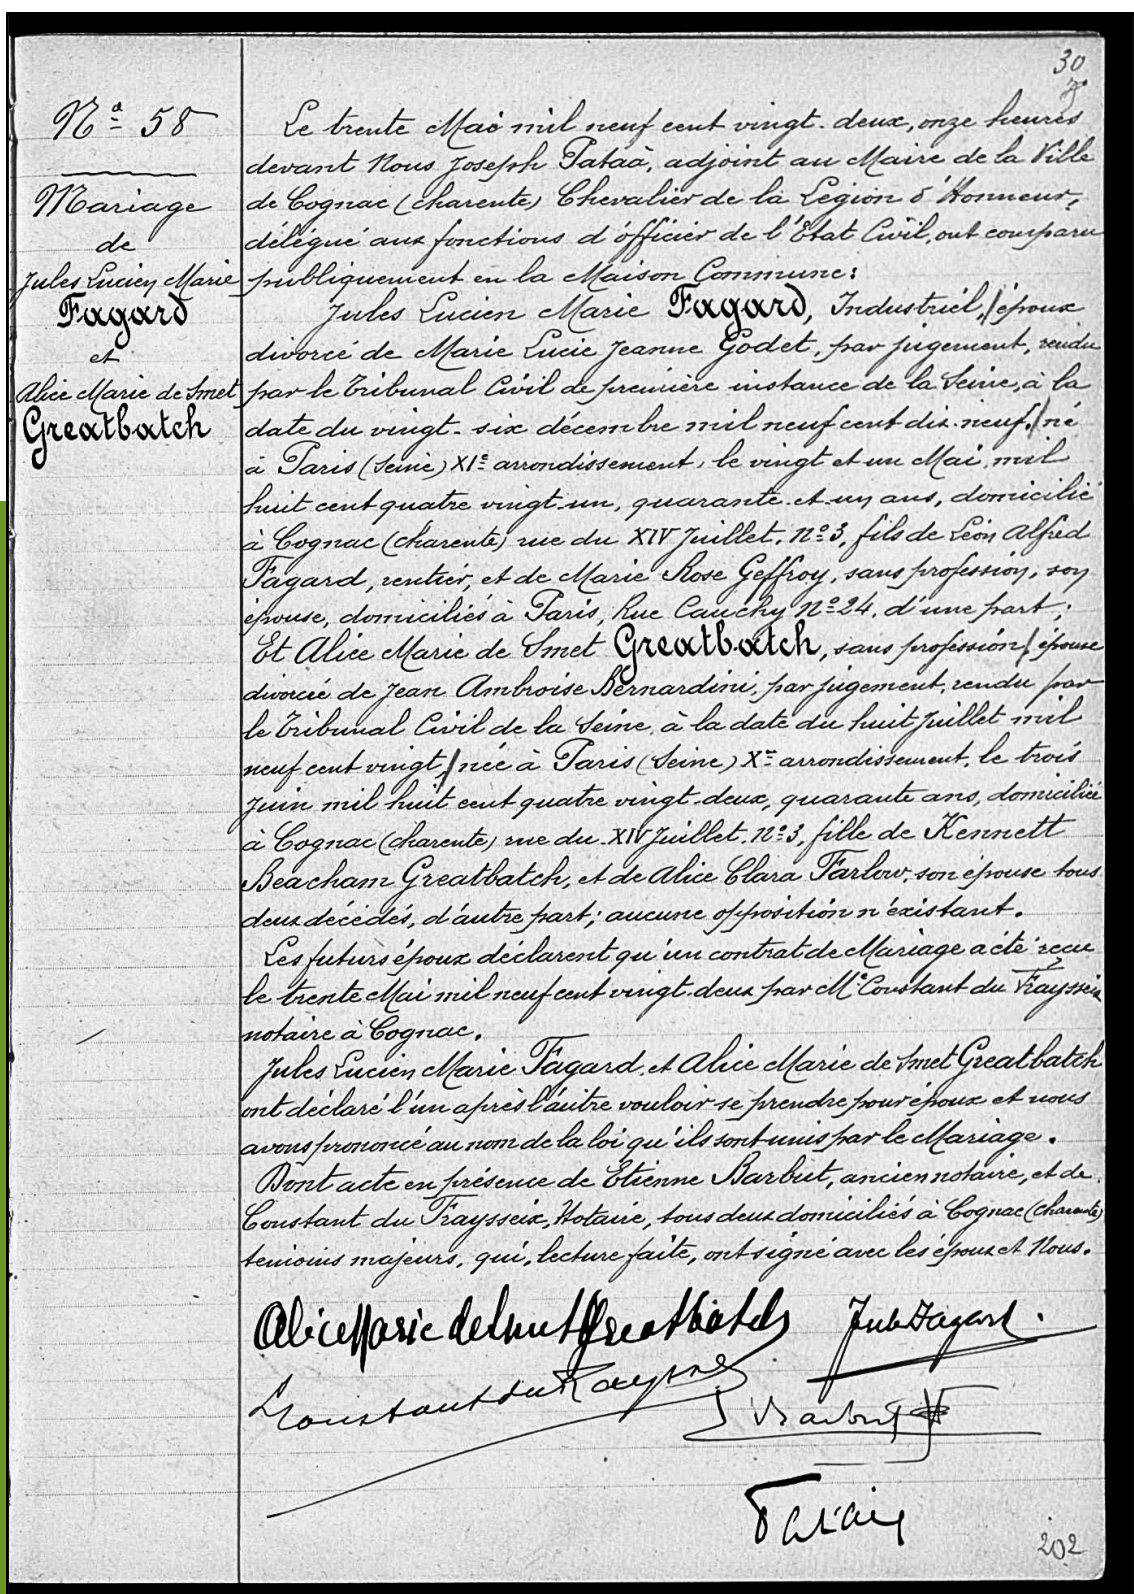 30
Nº 58
Mariage
de
Jules Lucien Marie
Fagard
et
Alice Marie de Smet
Greatbatch
Le trente Mai mil neuf cent vingt-deux, onze heures
devant Nous Joseph Pataà, adjoint au Maire de la Ville
de Cognac (charente) Chevalier de la Légion d'Honneur,
délégué aux fonctions d'officier de l'Etat Civil, ont comparu
publiquement en la Maison Commune:
Jules Lucien Marie Fagard, Industriel, / époux
divorcé de Marie Lucie Jeanne Godet, par jugement, rendu
par le Tribunal Civil de première instance de la Seine, à la
date du vingt-six décembre mil neuf cent dix-neuf, / né
à Paris (Seine) XIe arrondissement, le vingt et un Mai, mil
huit cent quatre vingt-un, quarante-et-un ans, domicilié
à Cognac (charente) rue du XIV Juillet. Nº 3, fils de Léon Alfred
Fagard, rentier, et de Marie Rose Geffroy, sans profession, son
épouse, domiciliés à Paris, Rue Cauchy Nº 24, d'une part;
Et Alice Marie de Smet Greatbatch, sans profession / épouse
divorcée de Jean Ambroise Bernardini, par jugement, rendu par
le Tribunal Civil de la Seine, à la date du huit Juillet mil
neuf cent vingt, / née à Paris (Seine) Xe arrondissement, le trois
Juin mil huit cent quatre vingt-deux, quarante ans, domiciliée
à Cognac (charente) rue du XIV Juillet. Nº 3, fille de Kennett
Beacham Greatbatch, et de Alice Clara Farlow, son épouse tous
deux décédés, d'autre part; aucune opposition n'existant.
Les futurs époux déclarent qu'un contrat de Mariage a été reçu
le trente Mai mil neuf cent vingt-deux par Me Constant du Fraysseix
notaire à Cognac.
Jules Lucien Marie Fagard, et Alice Marie de Smet Greatbatch
ont déclaré l'un après l'autre vouloir se prendre pour époux et nous
avons prononcé au nom de la loi qu'ils sont unis par le Mariage.
Dont acte en présence de Etienne Barbut, ancien notaire, et de
Constant du Fraysseix, Notaire, tous deux domiciliés à Cognac (charente)
témoins majeurs, qui, lecture faite, ont signé avec les époux et Nous.
Alice Marie de Smet Greatbatch Jules Fagard.
Constant du Fraysseix
Barbut
Pataà
202